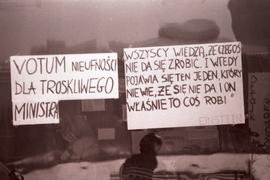 VOTUM NIEUFNOŚCI
DLA TROSKLIWEGO
MINISTRA
WSZYSCY WIEDZĄ, ŻE CZEGOŚ
NIE DA SIĘ ZROBIĆ. I WTEDY
POJAWIA SIĘ TEN JEDEN, KTÓRY
NIE WIE, ŻE SIĘ NIE DA I ON
WŁAŚNIE TO COŚ ROBI"
EINSTEIN